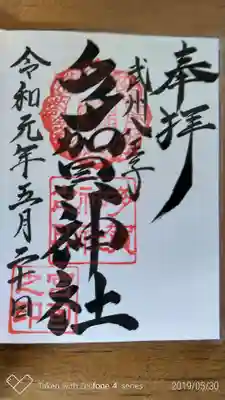 奉拝
武州八王子
多賀神社
令和元年五月三十日
Taken with Zenfone 4 series
2019/05/30